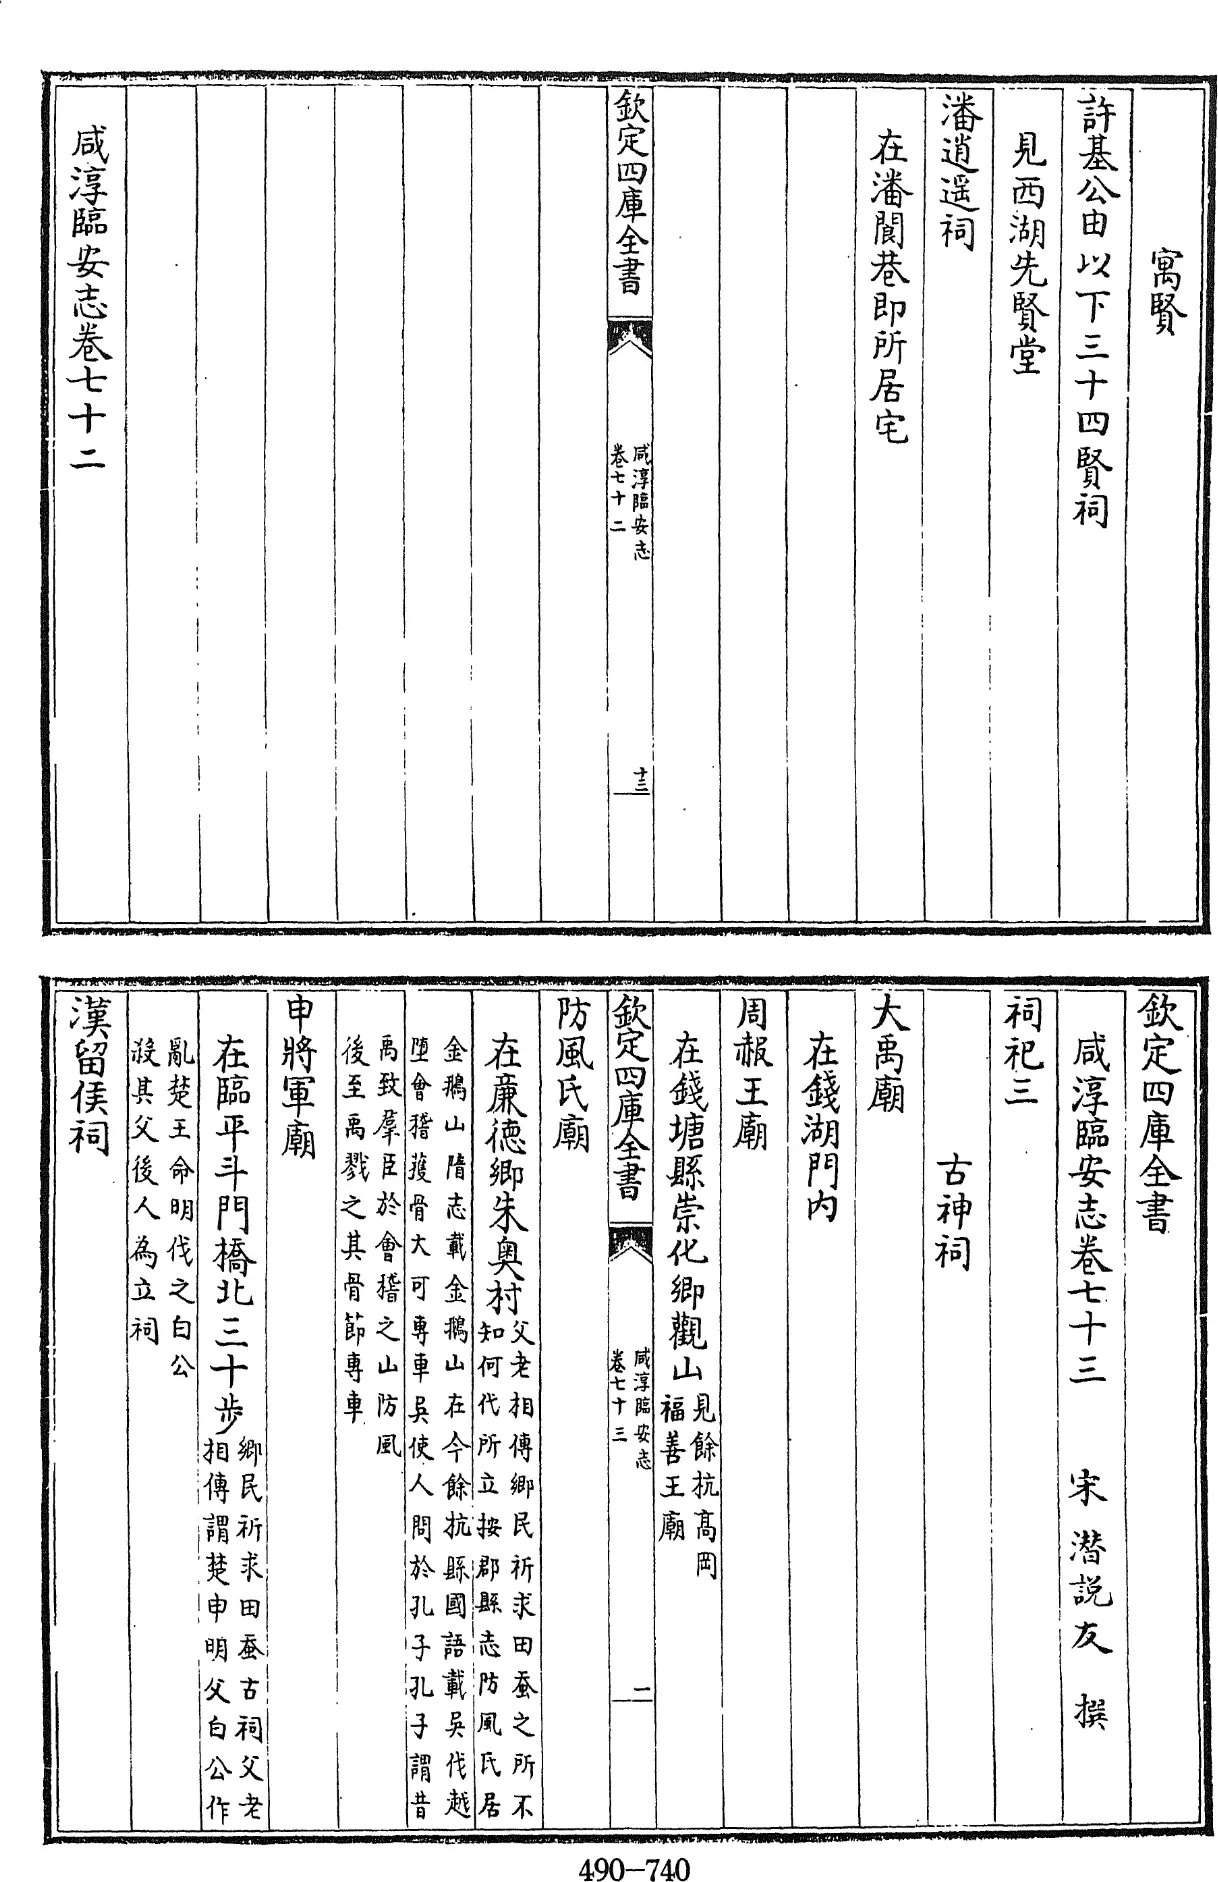 寓賢
許基公由以下三十四賢祠
見西湖先賢堂
潘逍遥祠
在潘閬巷即所居宅
欽定四庫全書
咸淳臨安志
卷七十二
十三
咸淳臨安志卷七十二
欽定四庫全書
咸淳臨安志卷七十三
宋 潛説友 撰
祠祀三
古神祠
大禹廟
在錢湖門内
周赧王廟
在錢塘縣崇化鄉觀山
見餘杭高岡
福善王廟
欽定四庫全書
咸淳臨安志
卷七十三
一
防風氏廟
在廉德鄉朱奥村
父老相傳鄉民祈求田蚕之所不
知何代所立按郡縣志防風氏居
金鵝山隋志載金鵝山在今餘杭縣國語載吳伐越
墮會稽獲骨大可專車吳使人問於孔子孔子謂昔
禹致羣臣於會稽之山防風
後至禹戮之其骨節專車
申將軍廟
在臨平斗門橋北三十步
鄉民祈求田蚕古祠父老
相傳謂楚申明父白公作
亂楚王命明伐之白公
殺其父後人為立祠
漢留侯祠
490-740